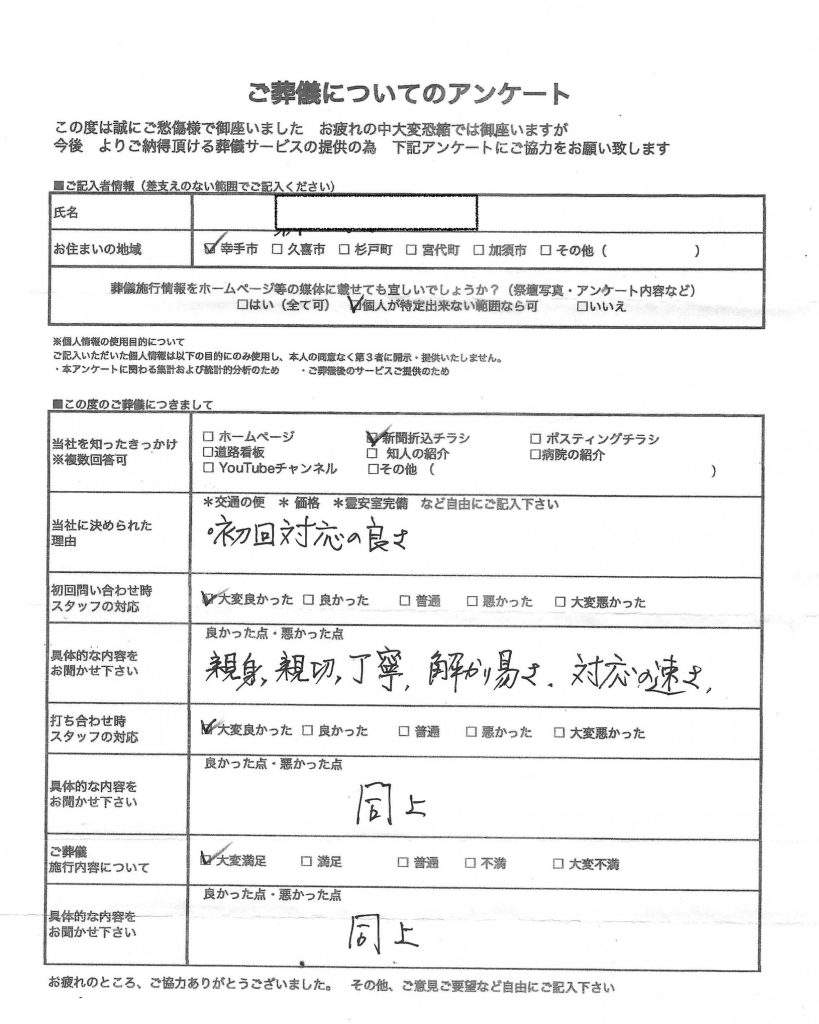 ご葬儀についてのアンケート
この度は誠にご愁傷様で御座いました お疲れの中大変恐縮では御座いますが
今後 よりご納得頂ける葬儀サービスの提供の為 下記アンケートにご協力をお願い致します
■ご記入者情報（差支えのない範囲でご記入ください）
氏名
お住まいの地域 ☑ 幸手市 □ 久喜市 □ 杉戸町 □ 宮代町 □ 加須市 □ その他（ ）
葬儀施行情報をホームページ等の媒体に載せても宜しいでしょうか？（祭壇写真・アンケート内容など）
□はい（全て可） ☑個人が特定出来ない範囲なら可 □いいえ
※個人情報の使用目的について
ご記入いただいた個人情報は以下の目的にのみ使用し、本人の同意なく第３者に開示・提供いたしません。
・本アンケートに関わる集計および統計的分析のため ・ご葬儀後のサービスご提供のため
■この度のご葬儀につきまして
当社を知ったきっかけ
※複数回答可
□ ホームページ ☑新聞折込チラシ □ ポスティングチラシ
□道路看板 □ 知人の紹介 □病院の紹介
□ YouTubeチャンネル □その他（ ）
当社に決められた
理由
＊交通の便 ＊ 価格 ＊霊安室完備 など自由にご記入下さい
・初回対応の良さ
初回問い合わせ時
スタッフの対応
☑ 大変良かった □ 良かった □ 普通 □ 悪かった □ 大変悪かった
具体的な内容を
お聞かせ下さい
良かった点・悪かった点
親身，親切，丁寧，解かり易さ．対応の速さ．
打ち合わせ時
スタッフの対応
☑ 大変良かった □ 良かった □ 普通 □ 悪かった □ 大変悪かった
具体的な内容を
お聞かせ下さい
良かった点・悪かった点
同上
ご葬儀
施行内容について
☑ 大変満足 □ 満足 □ 普通 □ 不満 □ 大変不満
具体的な内容を
お聞かせ下さい
良かった点・悪かった点
同上
お疲れのところ、ご協力ありがとうございました。 その他、ご意見ご要望など自由にご記入下さい